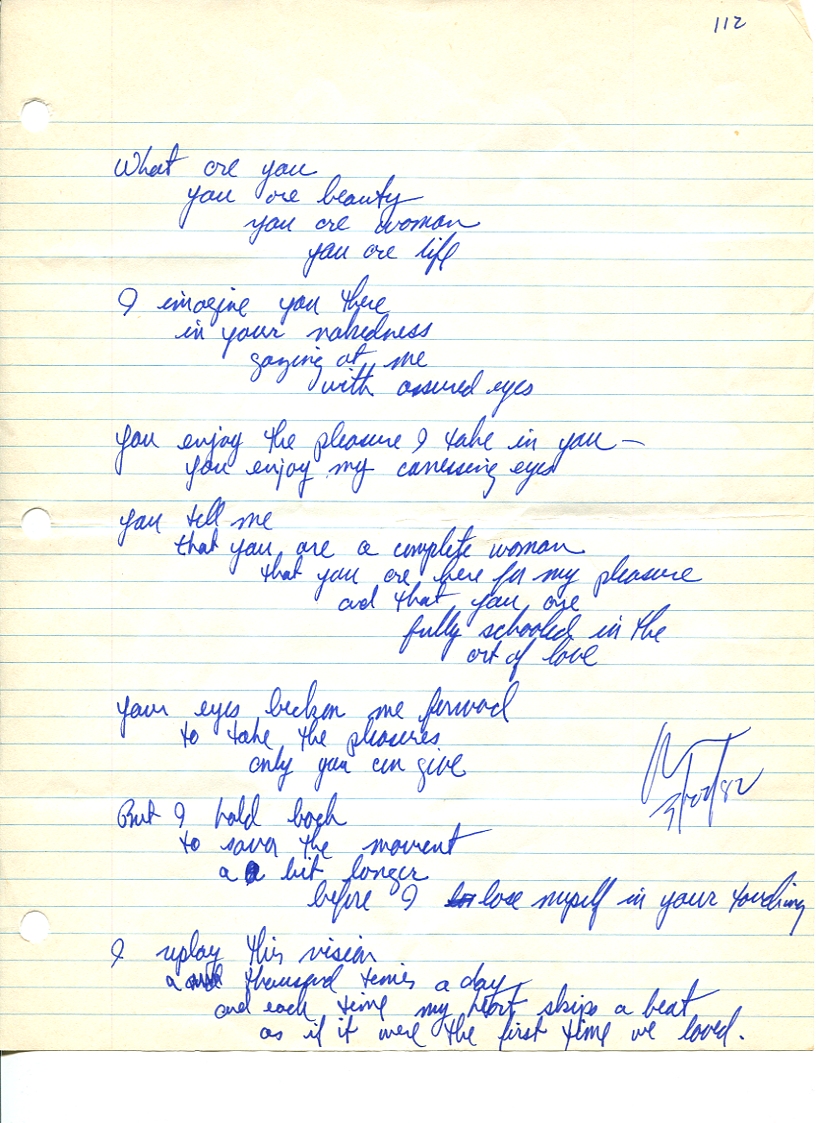 112
What are you
you are beauty
you are woman
you are life
I imagine you there
in your nakedness
gazing at me
with assured eyes
you enjoy the pleasure I take in you —
you enjoy my carressing eyes
you tell me
that you are a complete woman
that you are here for my pleasure
and that you are
fully schooled in the
art of love
your eyes beckon me forward
to take the pleasures
only you can give
But I hold back
to savor the moment
a bit longer
before I lose myself in your touching
I replay this vision
a thousand times a day
and each time my heart skips a beat
as if it were the first time we loved.